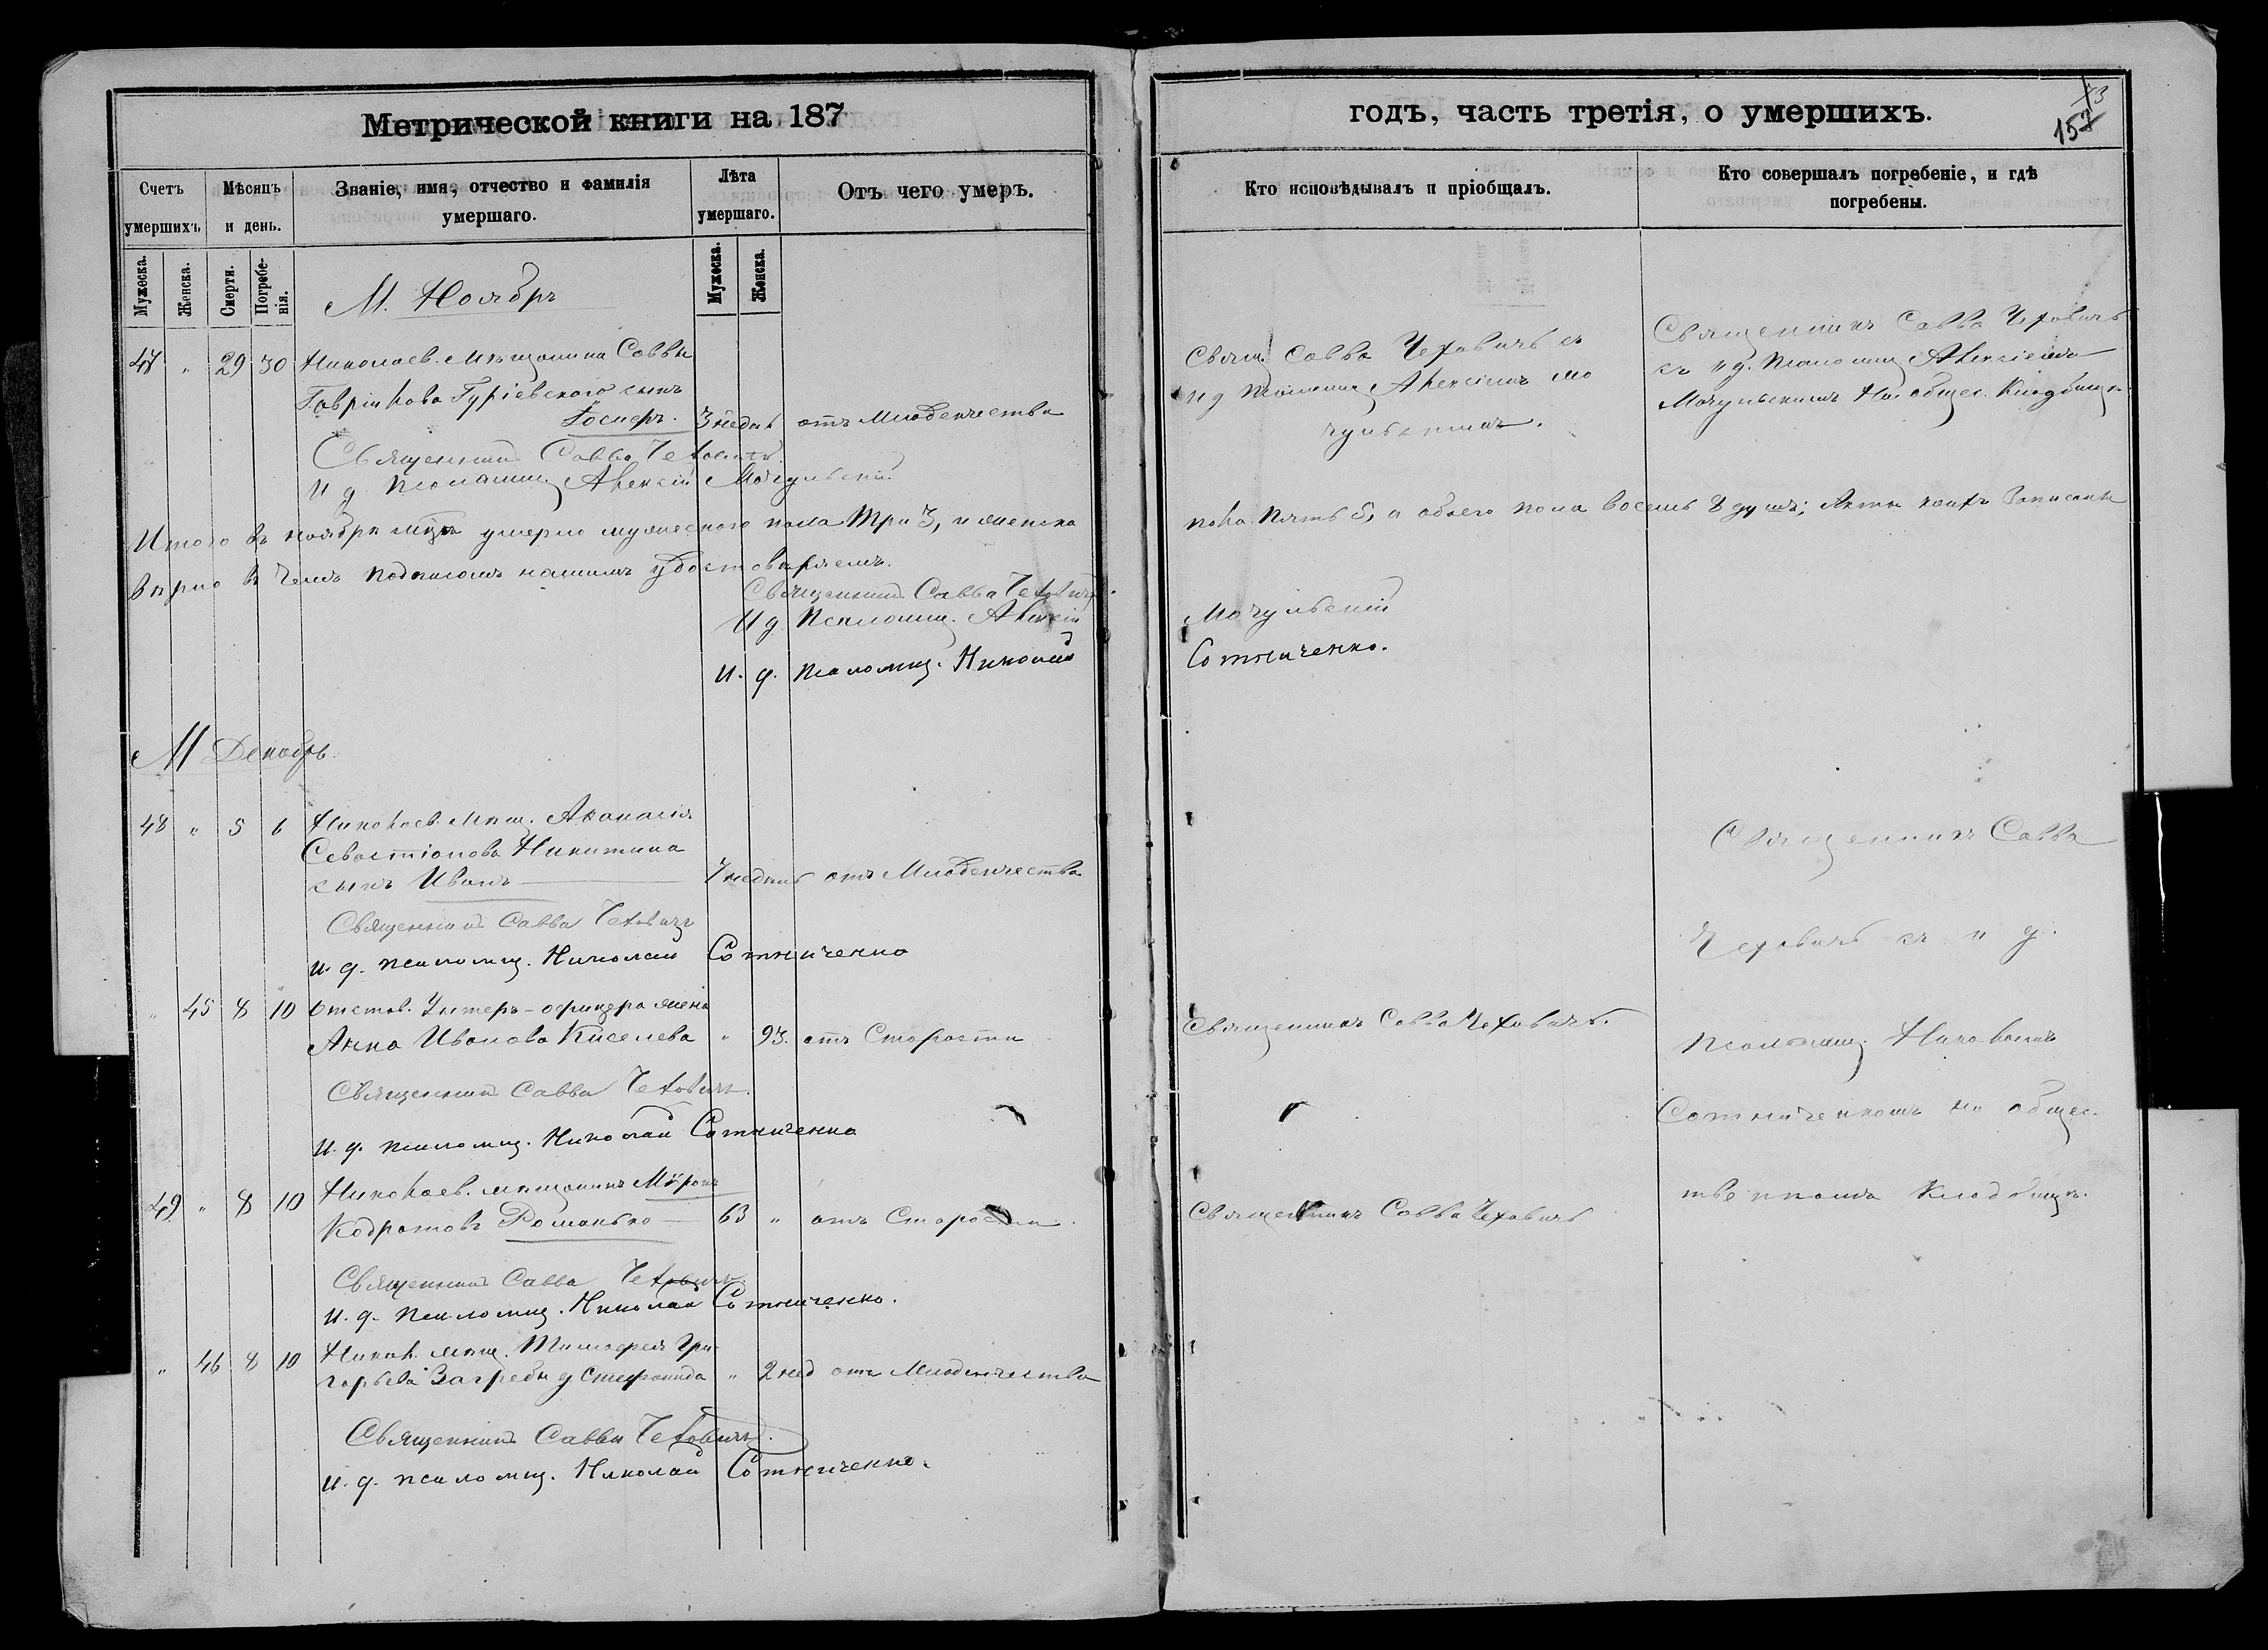 Метрической книги на 187
Счетъ умершихъ
Мѣсяцъ и день.
Званіе, имя, отчество и фамилія умершаго.
Лѣта умершаго.
Отъ чего умеръ.
Мужеска.
Женска.
Смерти.
Погребенія.
Мужеска.
Женска.
М. Ноябрь
47 " 29 30 Николаев. мѣщанина Саввы
Гавріилова Гуріевскаго сынъ
3 недѣл отъ младенчества
Священникъ Савва Чеховичъ
И д псаломщ. Алексій Мочульскій
Итого въ ноябрѣ мцѣ умерло мужескаго пола три 3, и женска
вѣрно въ чемъ подписомъ нашимъ удостовѣряемъ.
Священникъ Савва Чеховичъ.
И д. Псаломщ. Алексій
И. д. псаломщ. Николай
М Декабрь
48 " 5 6 Николаев. мѣщ. Аѳанасія
Севастіанова Никитина
сынъ Иванъ 7 недѣль отъ младенчества
Священникъ Савва Чеховичъ
и. д. псаломщ. Николай Сотниченко
" 45 8 10 Отстав. Унтеръ-офицера жена
Анна Иванова Киселева " 93. отъ Старости
Священникъ Савва Чеховичъ.
И. д. псаломщ. Николай Сотниченко
49 " 8 10 Николаев. мѣщанинъ Мѵронъ
Кодратовъ Романько 63 " отъ Старости.
Священникъ Савва Чеховичъ
И. д. псаломщ. Николай Сотниченко.
" 46 8 10 Никол. мѣщ. Тимофея Гри-
горьева Загребы д Стефанида " 2 нед отъ младенчества
Священникъ Савва Чеховичъ.
И. д. псаломщ. Николай Сотниченко.
годъ, часть третія, о умершихъ.
157
Кто исповѣдывалъ и пріобщалъ.
Кто совершалъ погребеніе, и гдѣ погребены.
Свящ. Савва Чеховичъ съ
и д псаломщ Алексіемъ Мо
чульскимъ.
Священникъ Савва Чеховичъ
съ и д. псаломщ Алексіемъ
Мочульскимъ На общес. кладбищѣ.
пола пять 5, а обоего пола восемь 8 душъ; Акты коихъ записаны
Мочульскій
Сотниченко.
Священникъ Савва
Чеховичъ съ и д.
псаломщ. Николаемъ
Сотниченкомъ на общес-
твенномъ кладбищѣ.
Священникъ Савва Чеховичъ.
Священникъ Савва Чеховичъ